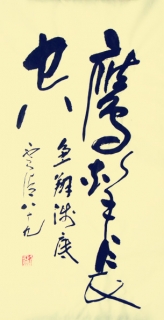 鹰击长
空
鱼翔浅底
八十九